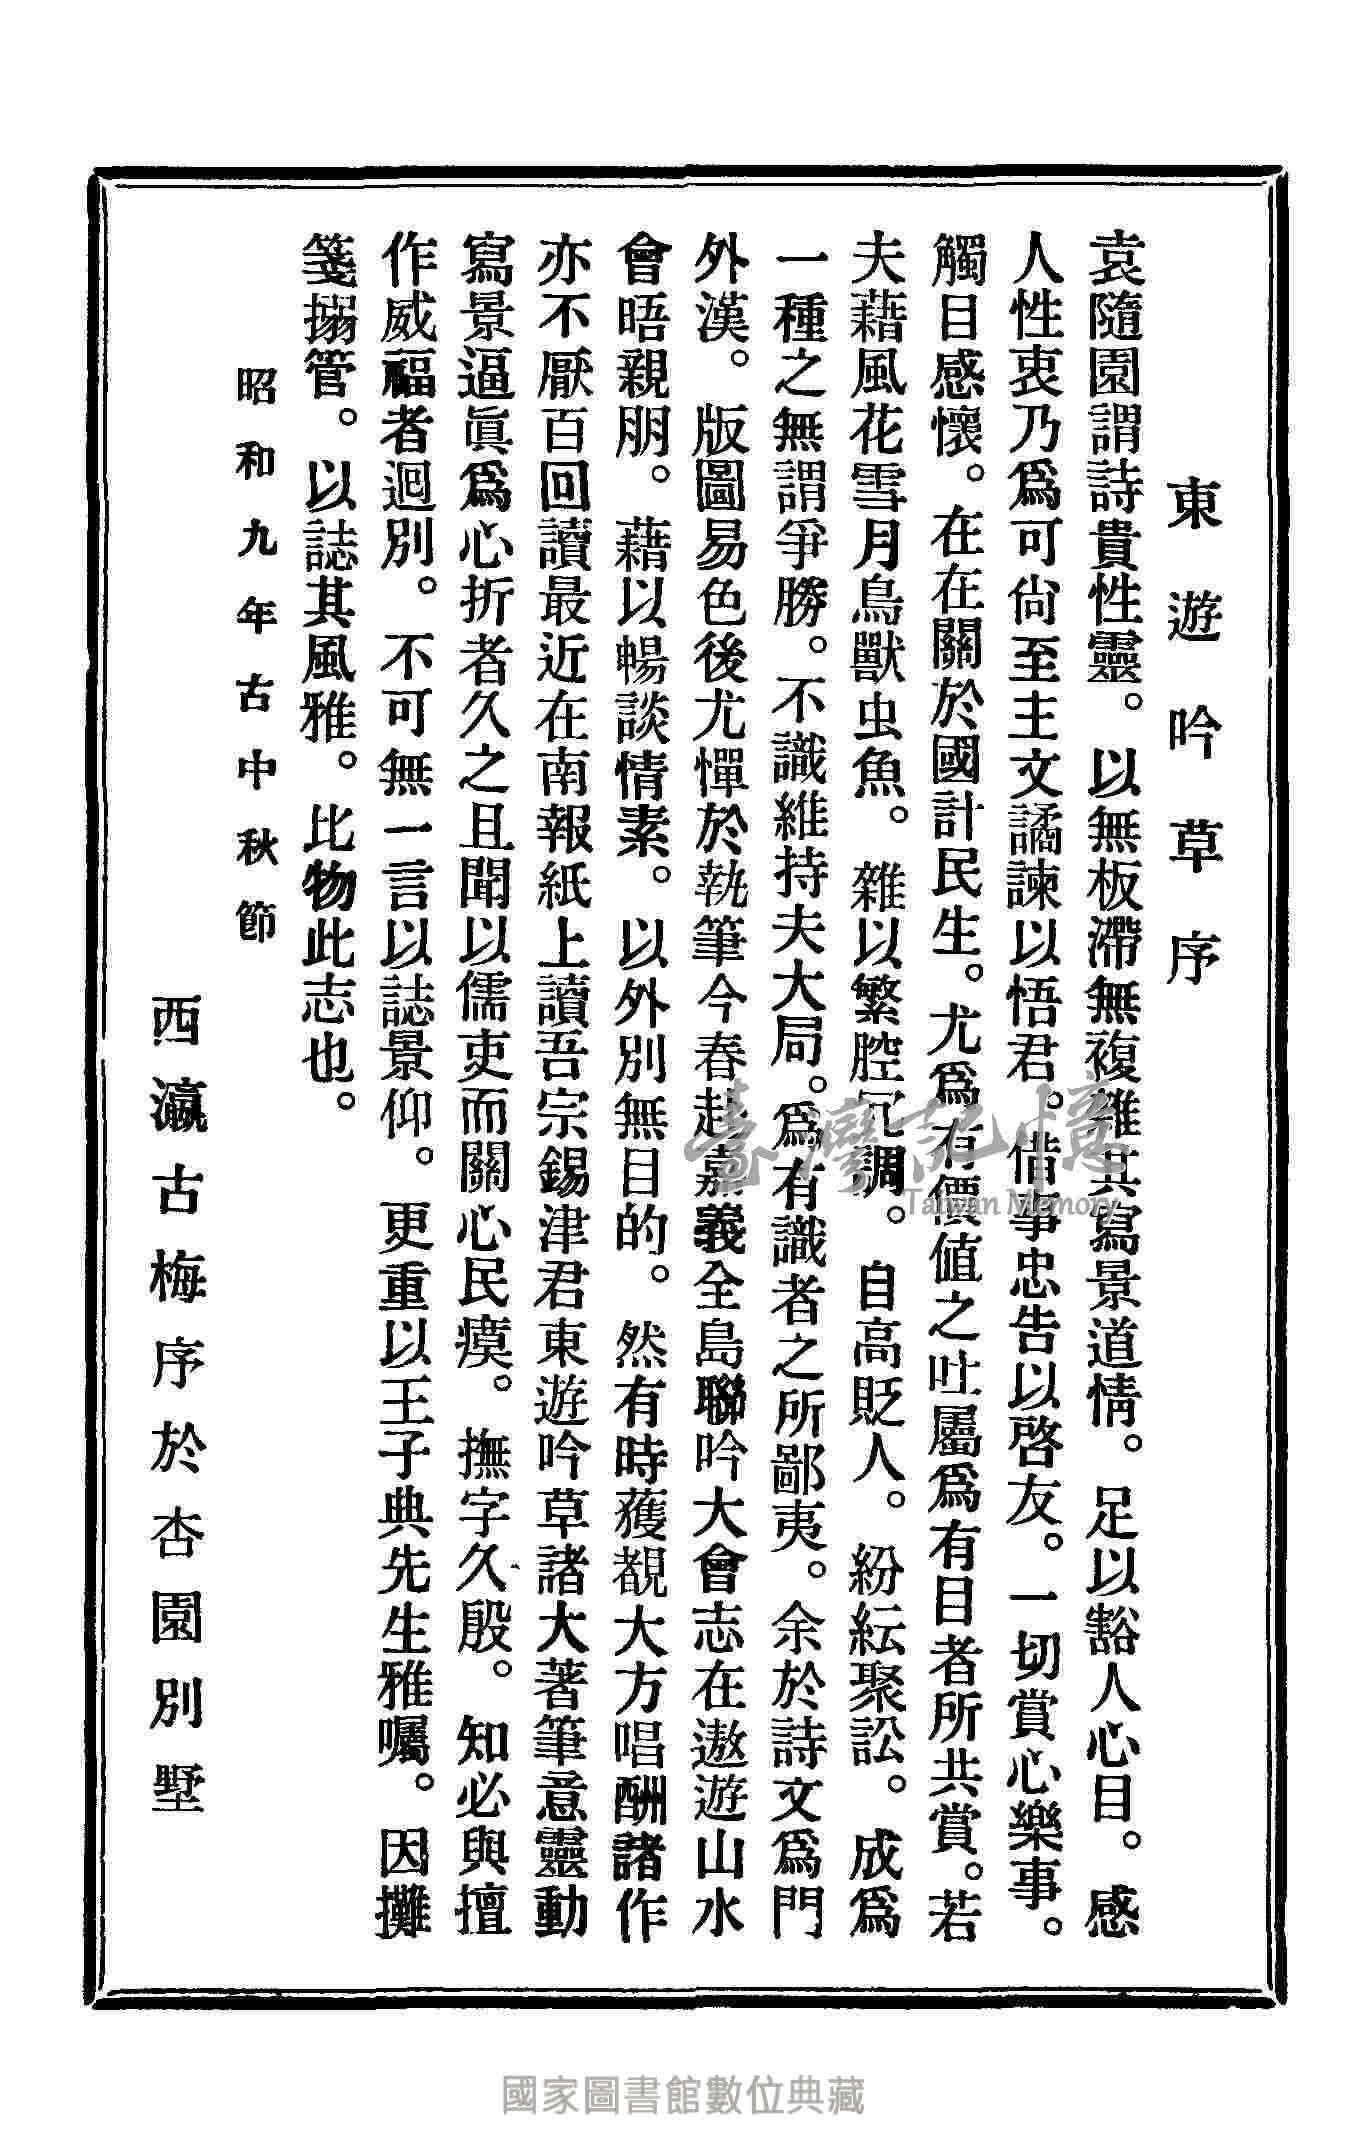 東遊吟草序
袁隨園謂詩貴性靈。以無板滯無複雜其寫景道情。足以豁人心目。感
人性衷乃爲可尙至主文譎諫以悟君。借事忠告以啓友。一切賞心樂事。
觸目感懷。在在關於國計民生。尤爲有價値之吐屬爲有目者所共賞。若
夫藉風花雪月鳥獸虫魚。雜以繁腔冗調。自高貶人。紛紜聚訟。成爲
一種之無謂爭勝。不識維持夫大局。爲有識者之所鄙夷。余於詩文爲門
外漢。版圖易色後尤憚於執筆今春赴嘉義全島聯吟大會志在遨遊山水
會晤親朋。藉以暢談情素。以外別無目的。然有時獲覩大方唱酬諸作
亦不厭百回讀最近在南報紙上讀吾宗錫津君東遊吟草諸大著筆意靈動
寫景逼眞爲心折者久之且聞以儒吏而關心民瘼。撫字久殷。知必與擅
作威福者迥別。不可無一言以誌景仰。更重以王子典先生雅囑。因攤
箋搦管。以誌其風雅。比物此志也。
昭和九年古中秋節
西瀛古梅序於杏園別墅
臺灣記憶
Taiwan Memory
國家圖書館數位典藏